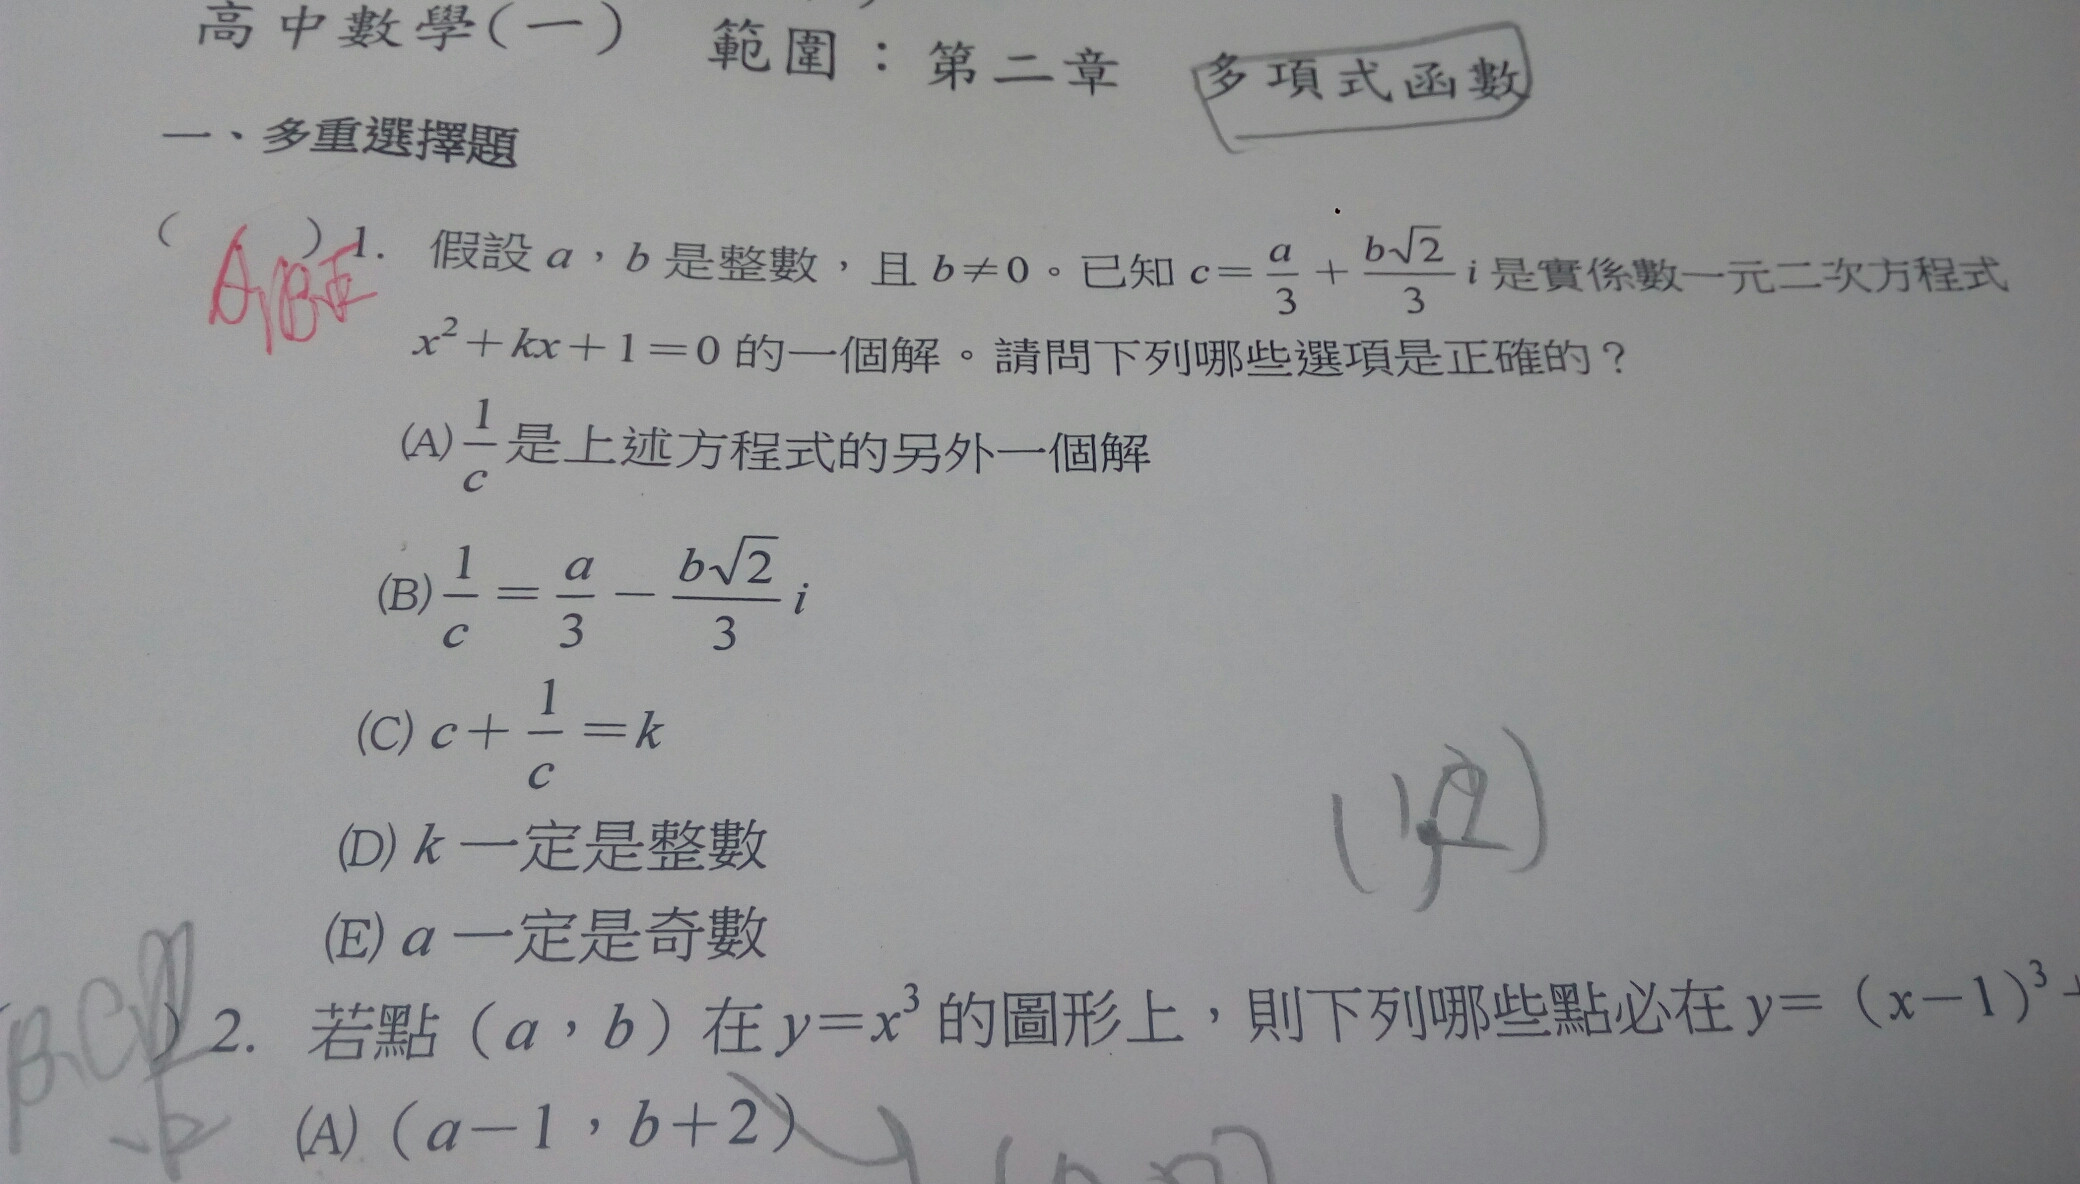 高中數學(一) 範圍：第二章 多項式函數
一、多重選擇題
( A,B,E ) 1. 假設 a，b 是整數，且 b≠0。已知 c=a/3+b√2/3 i 是實係數一元二次方程式
x²+kx+1=0 的一個解。請問下列哪些選項是正確的？
(A) 1/c 是上述方程式的另外一個解
(B) 1/c=a/3−b√2/3 i
(C) c+1/c=k
(D) k 一定是整數
(E) a 一定是奇數
) 2. 若點（a，b）在 y=x³ 的圖形上，則下列哪些點必在 y=（x−1)³+
(A)（a−1，b+2）